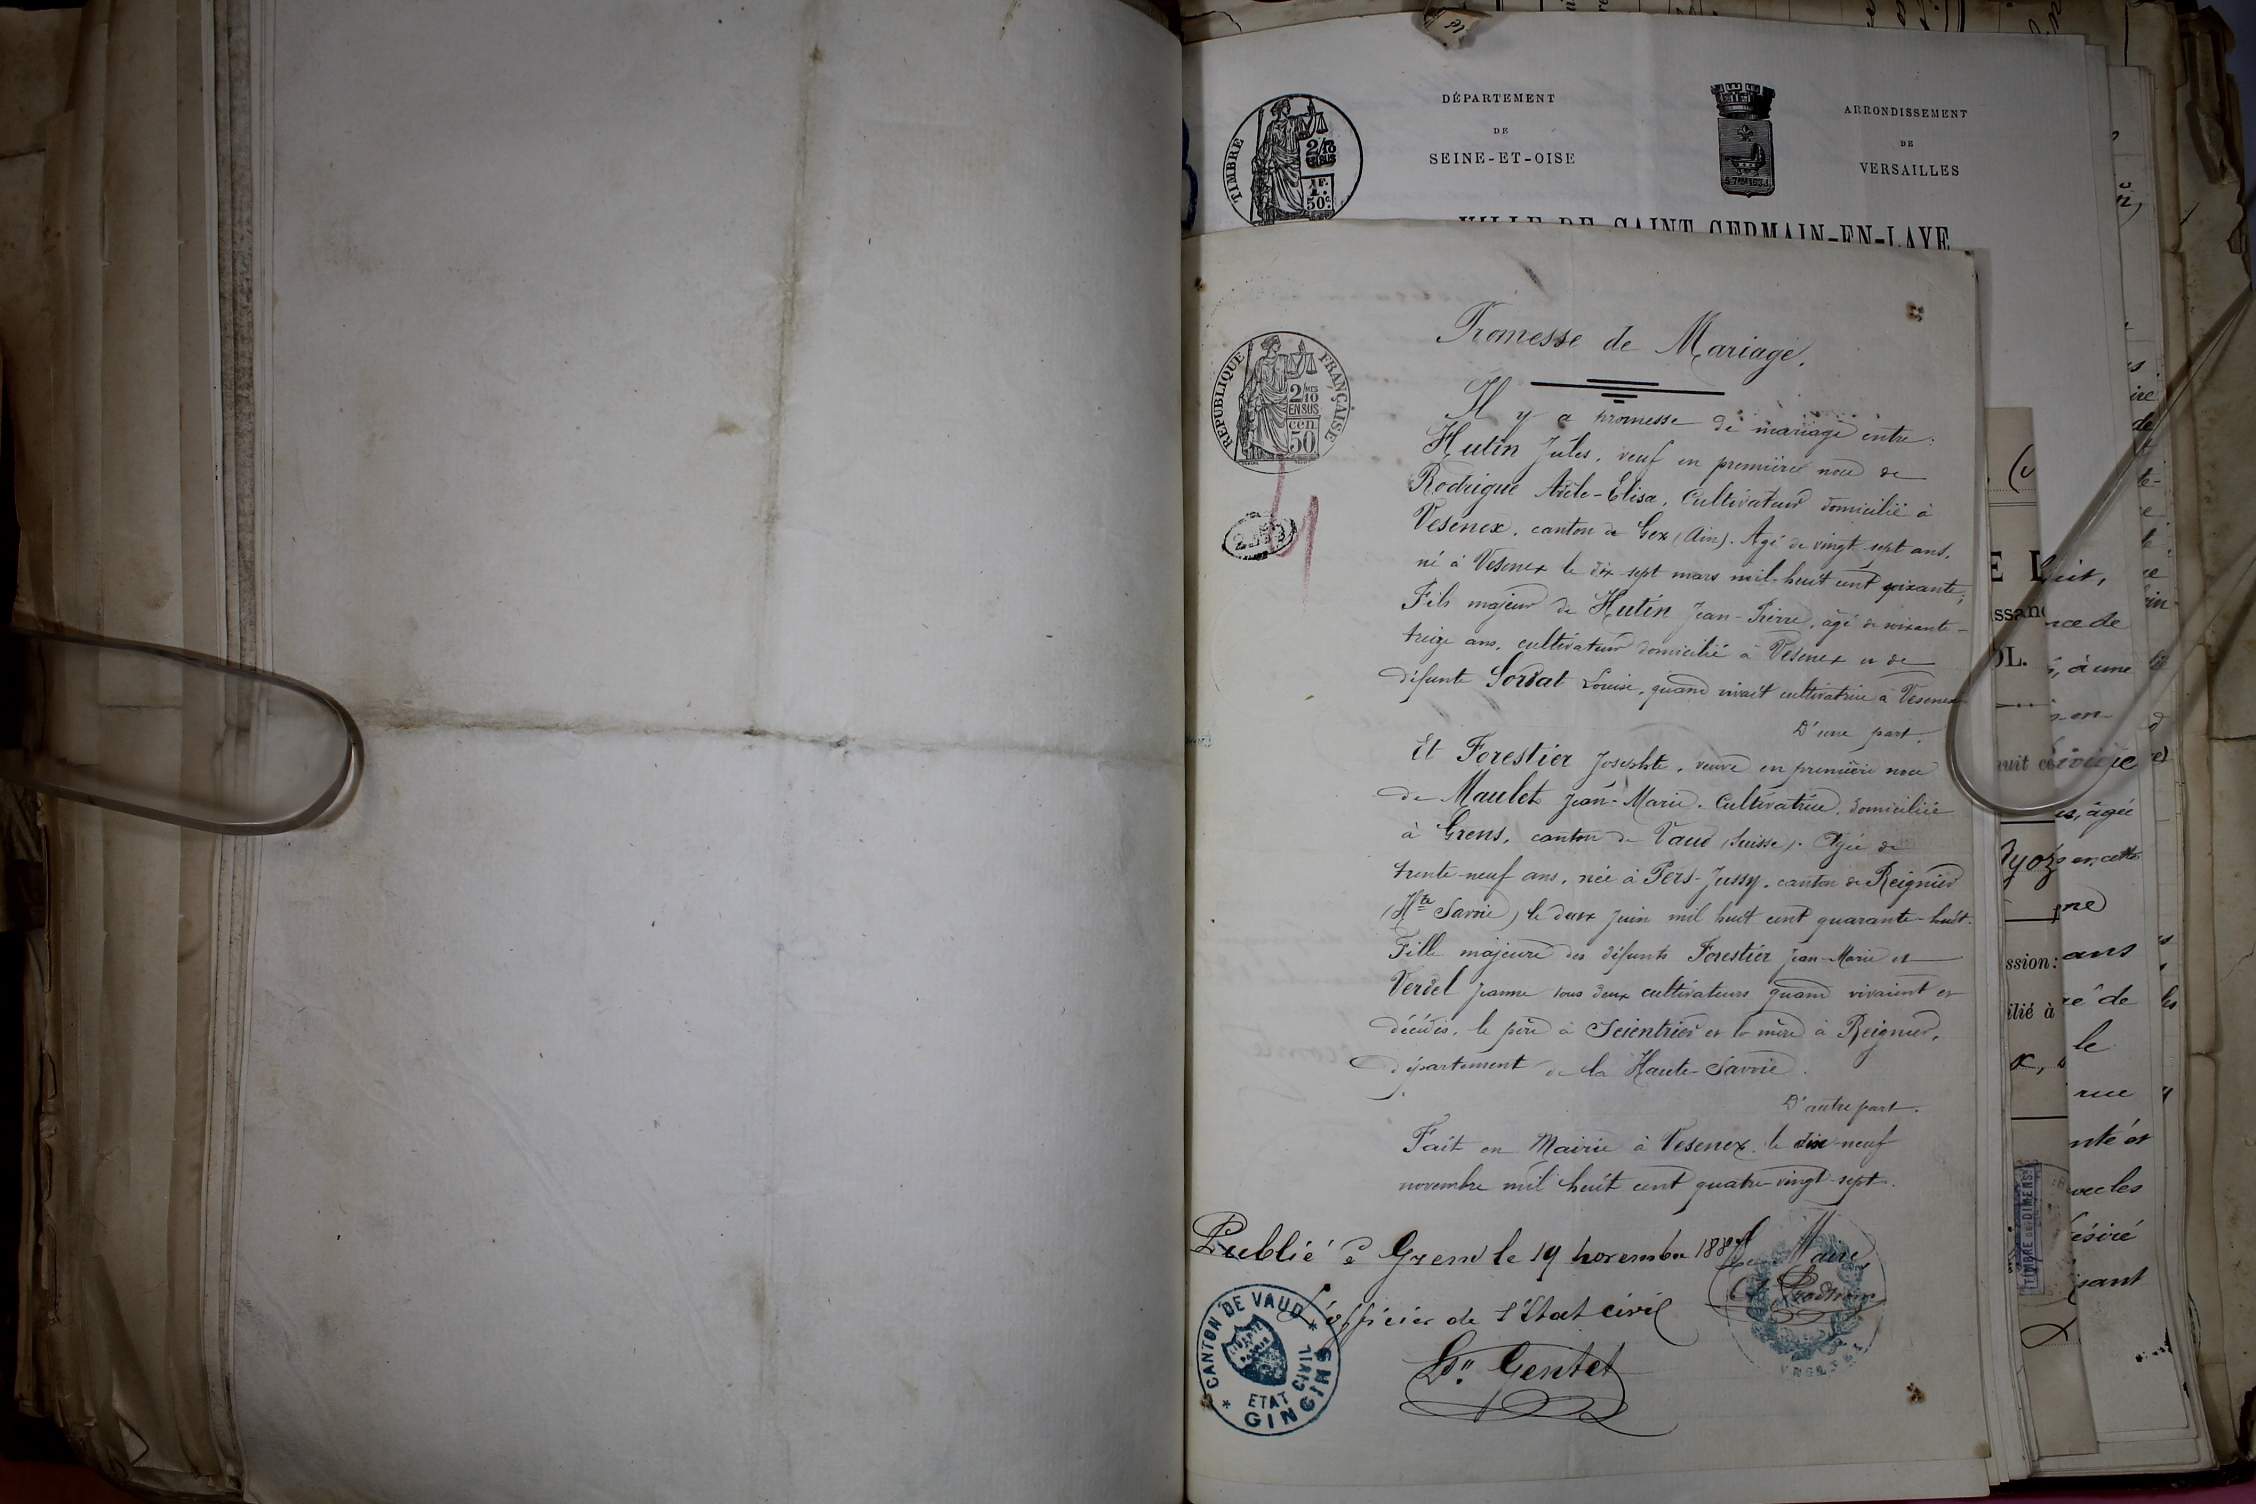 DÉPARTEMENT
DE
SEINE-ET-OISE
ARRONDISSEMENT
DE
VERSAILLES
VILLE DE SAINT-GERMAIN-EN-LAYE
TIMBRE
2/10
EN SUS
1F.
50c.
RÉPUBLIQUE FRANÇAISE
2/MES
10
EN SUS
cen.
50
Promesse de Mariage.
Il y a promesse de mariage entre:
Hutin Jules, veuf en première noce de
Rodrigue Adèle-Elisa, Cultivateur domicilié à
Vesenex, canton de Gex (Ain). Agé de vingt-sept ans,
né à Vesenex le dix-sept mars mil-huit cent soixante,
Fils majeur de Hutin Jean-Pierre, âgé de soixante-
treize ans, cultivateur domicilié à Vesenex et de
défunte Sordat Louise, quand vivait cultivatrice à Vesenex
D'une part.
Et Forestier Josephte, veuve en première noce
de Maulet Jean-Marie. Cultivatrice, domiciliée
à Grens, canton de Vaud (Suisse). Agée de
trente-neuf ans, née à Pers-Jussy, canton de Reignier
(Hte Savoie) le deux juin mil huit cent quarante-huit.
Fille majeure des défunts Forestier Jean-Marie et
Verdel Jeanne tous deux cultivateurs quand vivaient et
décédés, le père à Scientrier et la mère à Reignier,
département de la Haute-Savoie.
D'autre part.
Fait en Mairie à Vesenex le dix-neuf
novembre mil huit cent quatre-vingt-sept.
Publié à Grens le 19 novembre 1887
Le Maire
L'officier de l'Etat civil
Ls Gentet
CANTON DE VAUD
LIBERTÉ
PATRIE
ETAT CIVIL
GINGINS
TIMBRE DE DIMENS